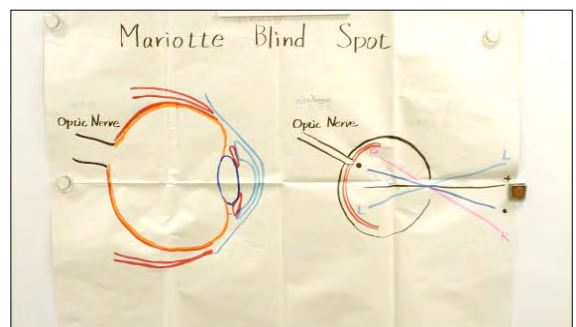 Mariotte Blind Spot
Optic Nerve
Optic Nerve
R
L
L
+
R